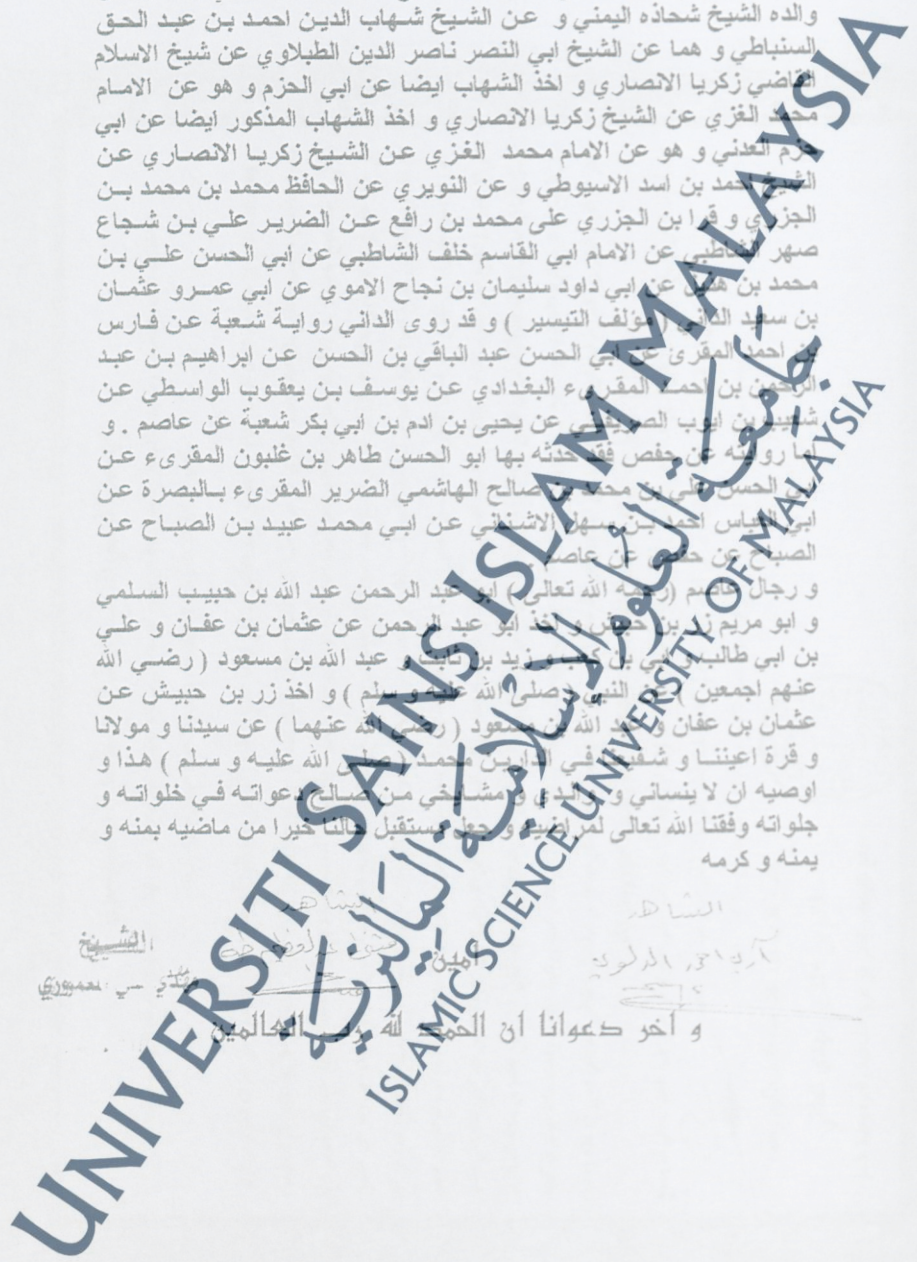 والده الشيخ شحاذه اليمني و عن الشيخ شهاب الدين احمد بن عبد الحق
السنباطي و هما عن الشيخ ابي النصر ناصر الدين الطبلاوي عن شيخ الاسلام
القاضي زكريا الانصاري و اخذ الشهاب ايضا عن ابي الحزم و هو عن الامام
محمد الغزي عن الشيخ زكريا الانصاري و اخذ الشهاب المذكور ايضا عن ابي
العدني و هو عن الامام محمد الغزي عن الشيخ زكريا الانصاري عن
الشيخ احمد بن اسد الاسيوطي و عن النويري عن الحافظ محمد بن محمد بن
الجزري و قرا بن الجزري على محمد بن رافع عن الضرير علي بن شجاع
صهر الشاطبي عن الامام ابي القاسم خلف الشاطبي عن ابي الحسن علي بن
محمد بن عن ابي داود سليمان بن نجاح الاموي عن ابي عمرو عثمان
بن سعيد الداني ( مؤلف التيسير ) و قد روى الداني رواية شعبة عن فارس
بن احمد المقرئ عن ابي الحسن عبد الباقي بن الحسن عن ابراهيم بن عبد
الرحمن بن احمد المقرىء البغدادي عن يوسف بن يعقوب الواسطي عن
شعيب بن ايوب عن يحيى بن ادم بن ابي بكر شعبة عن عاصم . و
روايته عن حفص فقد حدثه بها ابو الحسن طاهر بن غلبون المقرىء عن
ابي الحسن علي بن محمد بن صالح الهاشمي الضرير المقرىء بالبصرة عن
ابي العباس احمد بن سهل الاشناني عن ابي محمد عبيد بن الصباح عن
الصباح عن حفص عن عاصم
و رجال عاصم ( رحمه الله تعالى ) ابو عبد الرحمن عبد الله بن حبيب السلمي
و ابو مريم زر بن حبيش و اخذ ابو عبد الرحمن عن عثمان بن عفان و علي
بن ابي طالب و ابي بن كعب و زيد بن ثابت و عبد الله بن مسعود ( رضي الله
عنهم اجمعين ) عن النبي ( صلى الله عليه و سلم ) و اخذ زر بن حبيش عن
عثمان بن عفان و عبد الله بن مسعود ( رضي الله عنهما ) عن سيدنا و مولانا
و قرة اعيننا و شفيعنا في الدارين محمد ( صلى الله عليه و سلم ) هذا و
اوصيه ان لا ينساني و والدي و مشايخي من صالح دعواته في خلواته و
جلواته وفقنا الله تعالى لمراضيه و جعل مستقبل حالنا خيرا من ماضيه بمنه و
يمنه و كرمه
الشاهد
الشاهد
الشيخ
امين
و اخر دعوانا ان الحمد لله رب العالمين
UNIVERSITI SAINS ISLAM MALAYSIA
جامعة العلوم الإسلامية الماليزية
ISLAMIC SCIENCE UNIVERSITY OF MALAYSIA